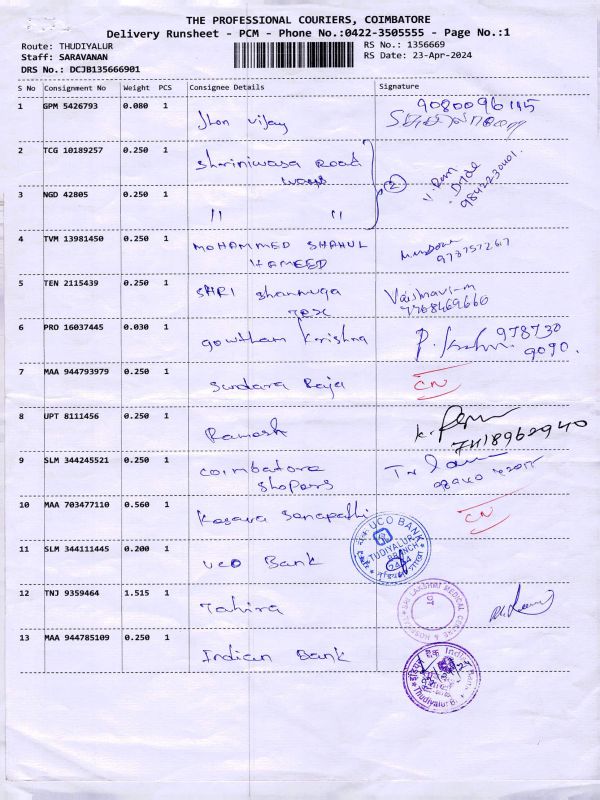 THE PROFESSIONAL COURIERS, COIMBATORE
Delivery Runsheet - PCM - Phone No.:0422-3505555 - Page No.:1
Route: THUDIYALUR
RS No.: 1356669
Staff: SARAVANAN
RS Date: 23-Apr-2024
DRS No.: DCJB135666901
S No Consignment No Weight PCS Consignee Details Signature
1 GPM 5426793 0.080 1 Jhon vijay 9080096145
2 TCG 10189257 0.250 1 Shriniwasa Road ways 2
3 NGD 42805 0.250 1 " " 9842230401
4 TVM 13981450 0.250 1 MOHAMMED SHAHUL HAMEED
5 TEN 2115439 0.250 1 SHRI Shanmuga Tex Vaishnavi-m 7708469660
6 PRO 16037445 0.030 1 gowtham krishna 978730 9090.
7 MAA 944793979 0.250 1 Sundara Raja CN
8 UPT 8111456 0.250 1 Ramesh 7418962940
9 SLM 344245521 0.250 1 coimbatore shopers
10 MAA 703477110 0.560 1 Kesava Ganapathi CN
11 SLM 344111445 0.200 1 UCO Bank
UCO BANK
TUDIYALUR
BRANCH
2484
12 TNJ 9359464 1.515 1 Tahira
SRI LAKSHMI MEDICAL CENTRE & HOSPITAL
OT
13 MAA 944785109 0.250 1 Indian Bank
Thudiyalur